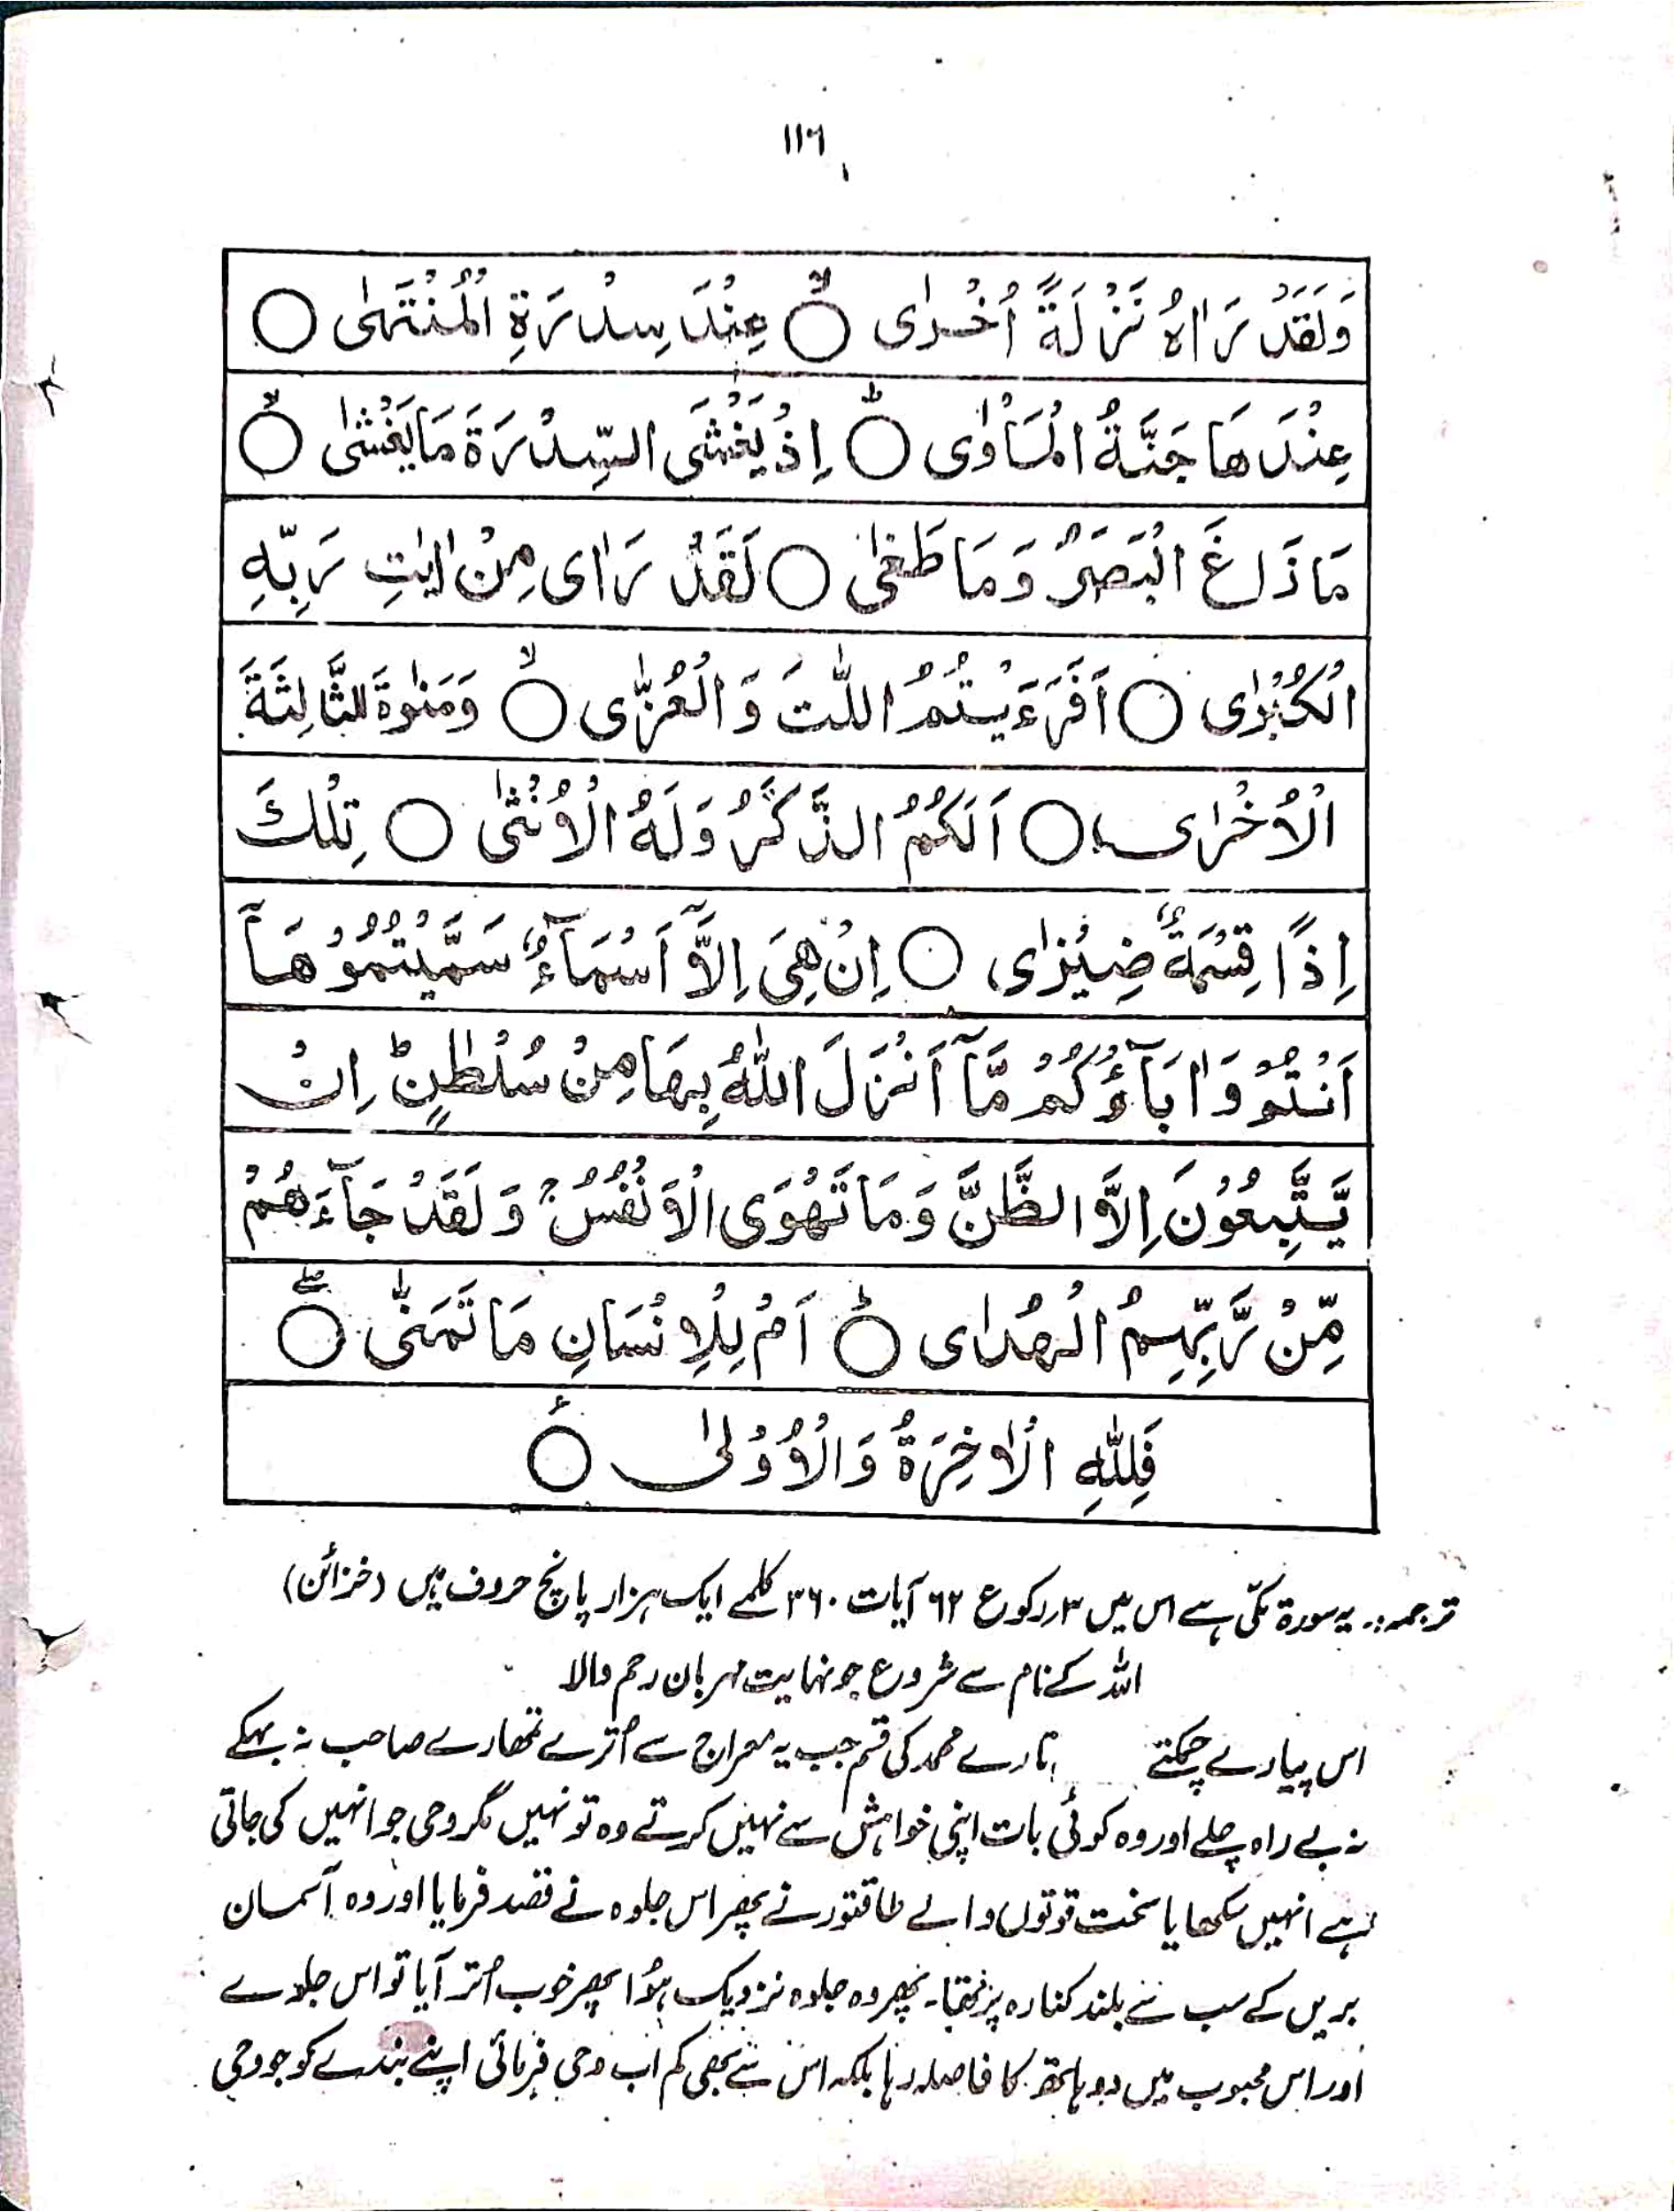 ١١٦
وَلَقَدْ رَاٰهُ نَزْلَةً اُخْرٰى ۙ○ عِنْدَ سِدْرَةِ الْمُنْتَهٰى ○
عِنْدَهَا جَنَّةُ الْمَاْوٰى ؕ○ اِذْ يَغْشَى السِّدْرَةَ مَا يَغْشٰى ۙ○
مَا زَاغَ الْبَصَرُ وَمَا طَغٰى ○ لَقَدْ رَاٰى مِنْ اٰيٰتِ رَبِّهِ
الْكُبْرٰى ○ اَفَرَءَيْتُمُ اللّٰتَ وَالْعُزّٰى ۙ○ وَمَنٰوةَ الثَّالِثَةَ
الْاُخْرٰى ○ اَلَكُمُ الذَّكَرُ وَلَهُ الْاُنْثٰى ○ تِلْكَ
اِذًا قِسْمَةٌ ضِيْزٰى ○ اِنْ هِيَ اِلَّآ اَسْمَآءٌ سَمَّيْتُمُوْهَآ
اَنْتُمْ وَاٰبَآؤُكُمْ مَّآ اَنْزَلَ اللّٰهُ بِهَا مِنْ سُلْطٰنٍ ؕ اِنْ
يَّتَّبِعُوْنَ اِلَّا الظَّنَّ وَمَا تَهْوَى الْاَنْفُسُ ۚ وَلَقَدْ جَآءَهُمْ
مِّنْ رَّبِّهِمُ الْهُدٰى ؕ○ اَمْ لِلْاِنْسَانِ مَا تَمَنّٰى ۖ○
فَلِلّٰهِ الْاٰخِرَةُ وَالْاُوْلٰى ○ع
ترجمہ:۔ یہ سورۃ مکّی ہے اس میں ۳ رکوع ۶۲ آیات ۳۶۰ کلمے ایک ہزار پانچ حروف ہیں (خزائن)
اللہ کے نام سے شروع جو نہایت مہربان رحم والا
اس پیارے چمکتے تارے محمد کی قسم جب یہ معراج سے اُترے تمھارے صاحب نہ بہکے
نہ بے راہ چلے اور وہ کوئی بات اپنی خواہش سے نہیں کرتے وہ تو نہیں مگر وحی جو انہیں کی جاتی
ہے انہیں سکھایا سخت قوتوں والے طاقتور نے پھر اس جلوہ نے قصد فرمایا اور وہ آسمان
بریں کے سب سے بلند کنارہ پر تھا۔ پھر وہ جلوہ نزدیک ہوُا پھر خوب اُتر آیا تو اس جلوے
اور اس محبوب میں دو ہاتھ کا فاصلہ رہا بلکہ اس سے بھی کم اب وحی فرمائی اپنے بندے کو جو وحی